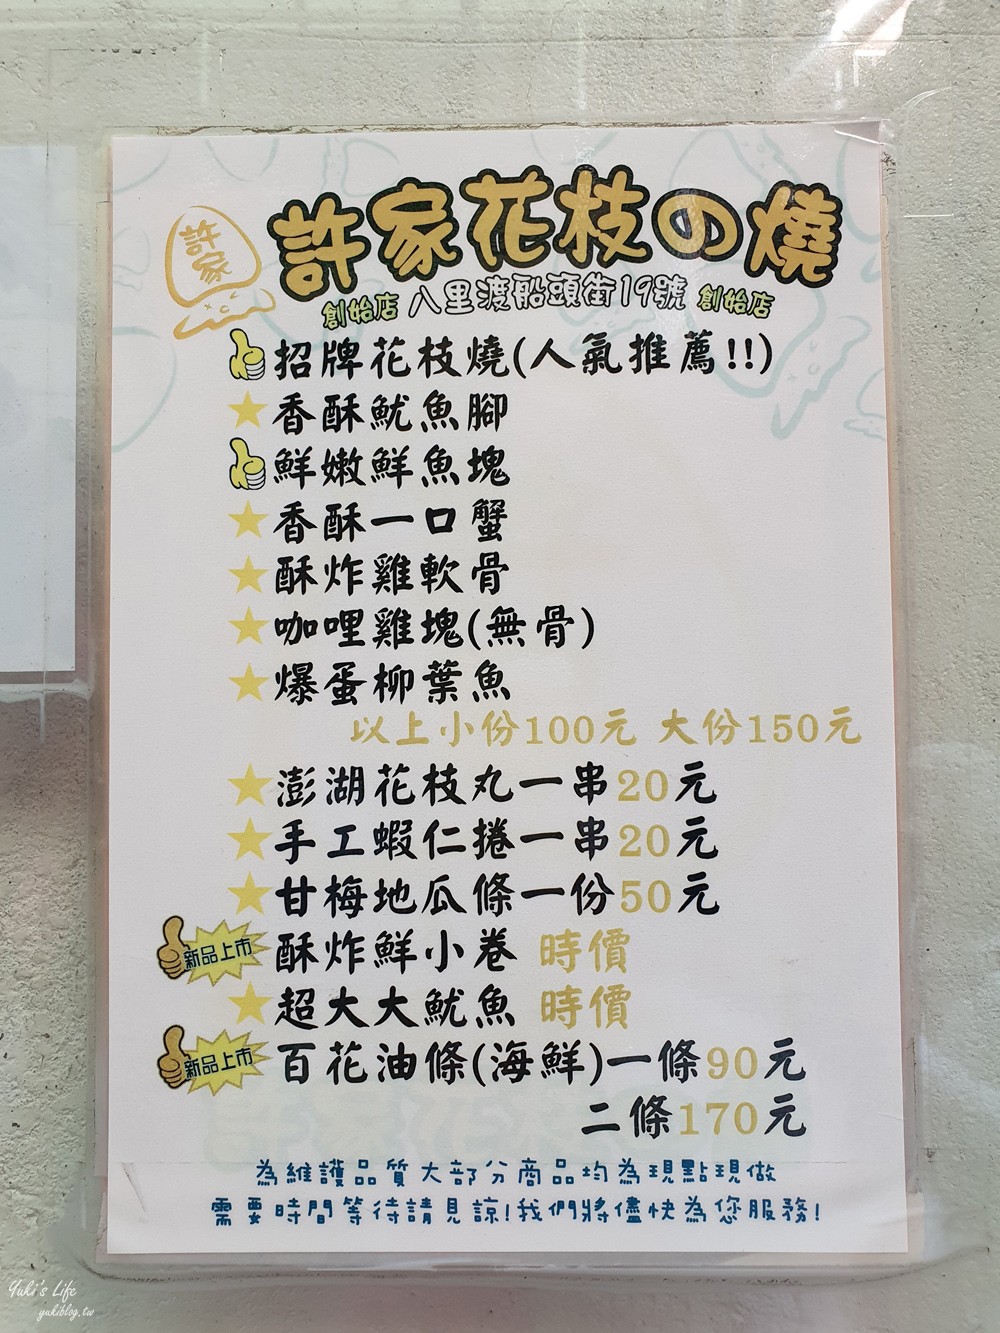 許家
許家花枝の燒
創始店 八里渡船頭街19號 創始店
招牌花枝燒(人氣推薦!!)
香酥魷魚腳
鮮嫩鮮魚塊
香酥一口蟹
酥炸雞軟骨
咖哩雞塊(無骨)
爆蛋柳葉魚
以上小份100元 大份150元
澎湖花枝丸一串20元
手工蝦仁捲一串20元
甘梅地瓜條一份50元
新品上市 酥炸鮮小卷 時價
超大大魷魚 時價
新品上市 百花油條(海鮮)一條90元
二條170元
為維護品質大部分商品均為現點現做
需要時間等待請見諒!我們將儘快為您服務!
Yuki's Life
yukiblog.tw